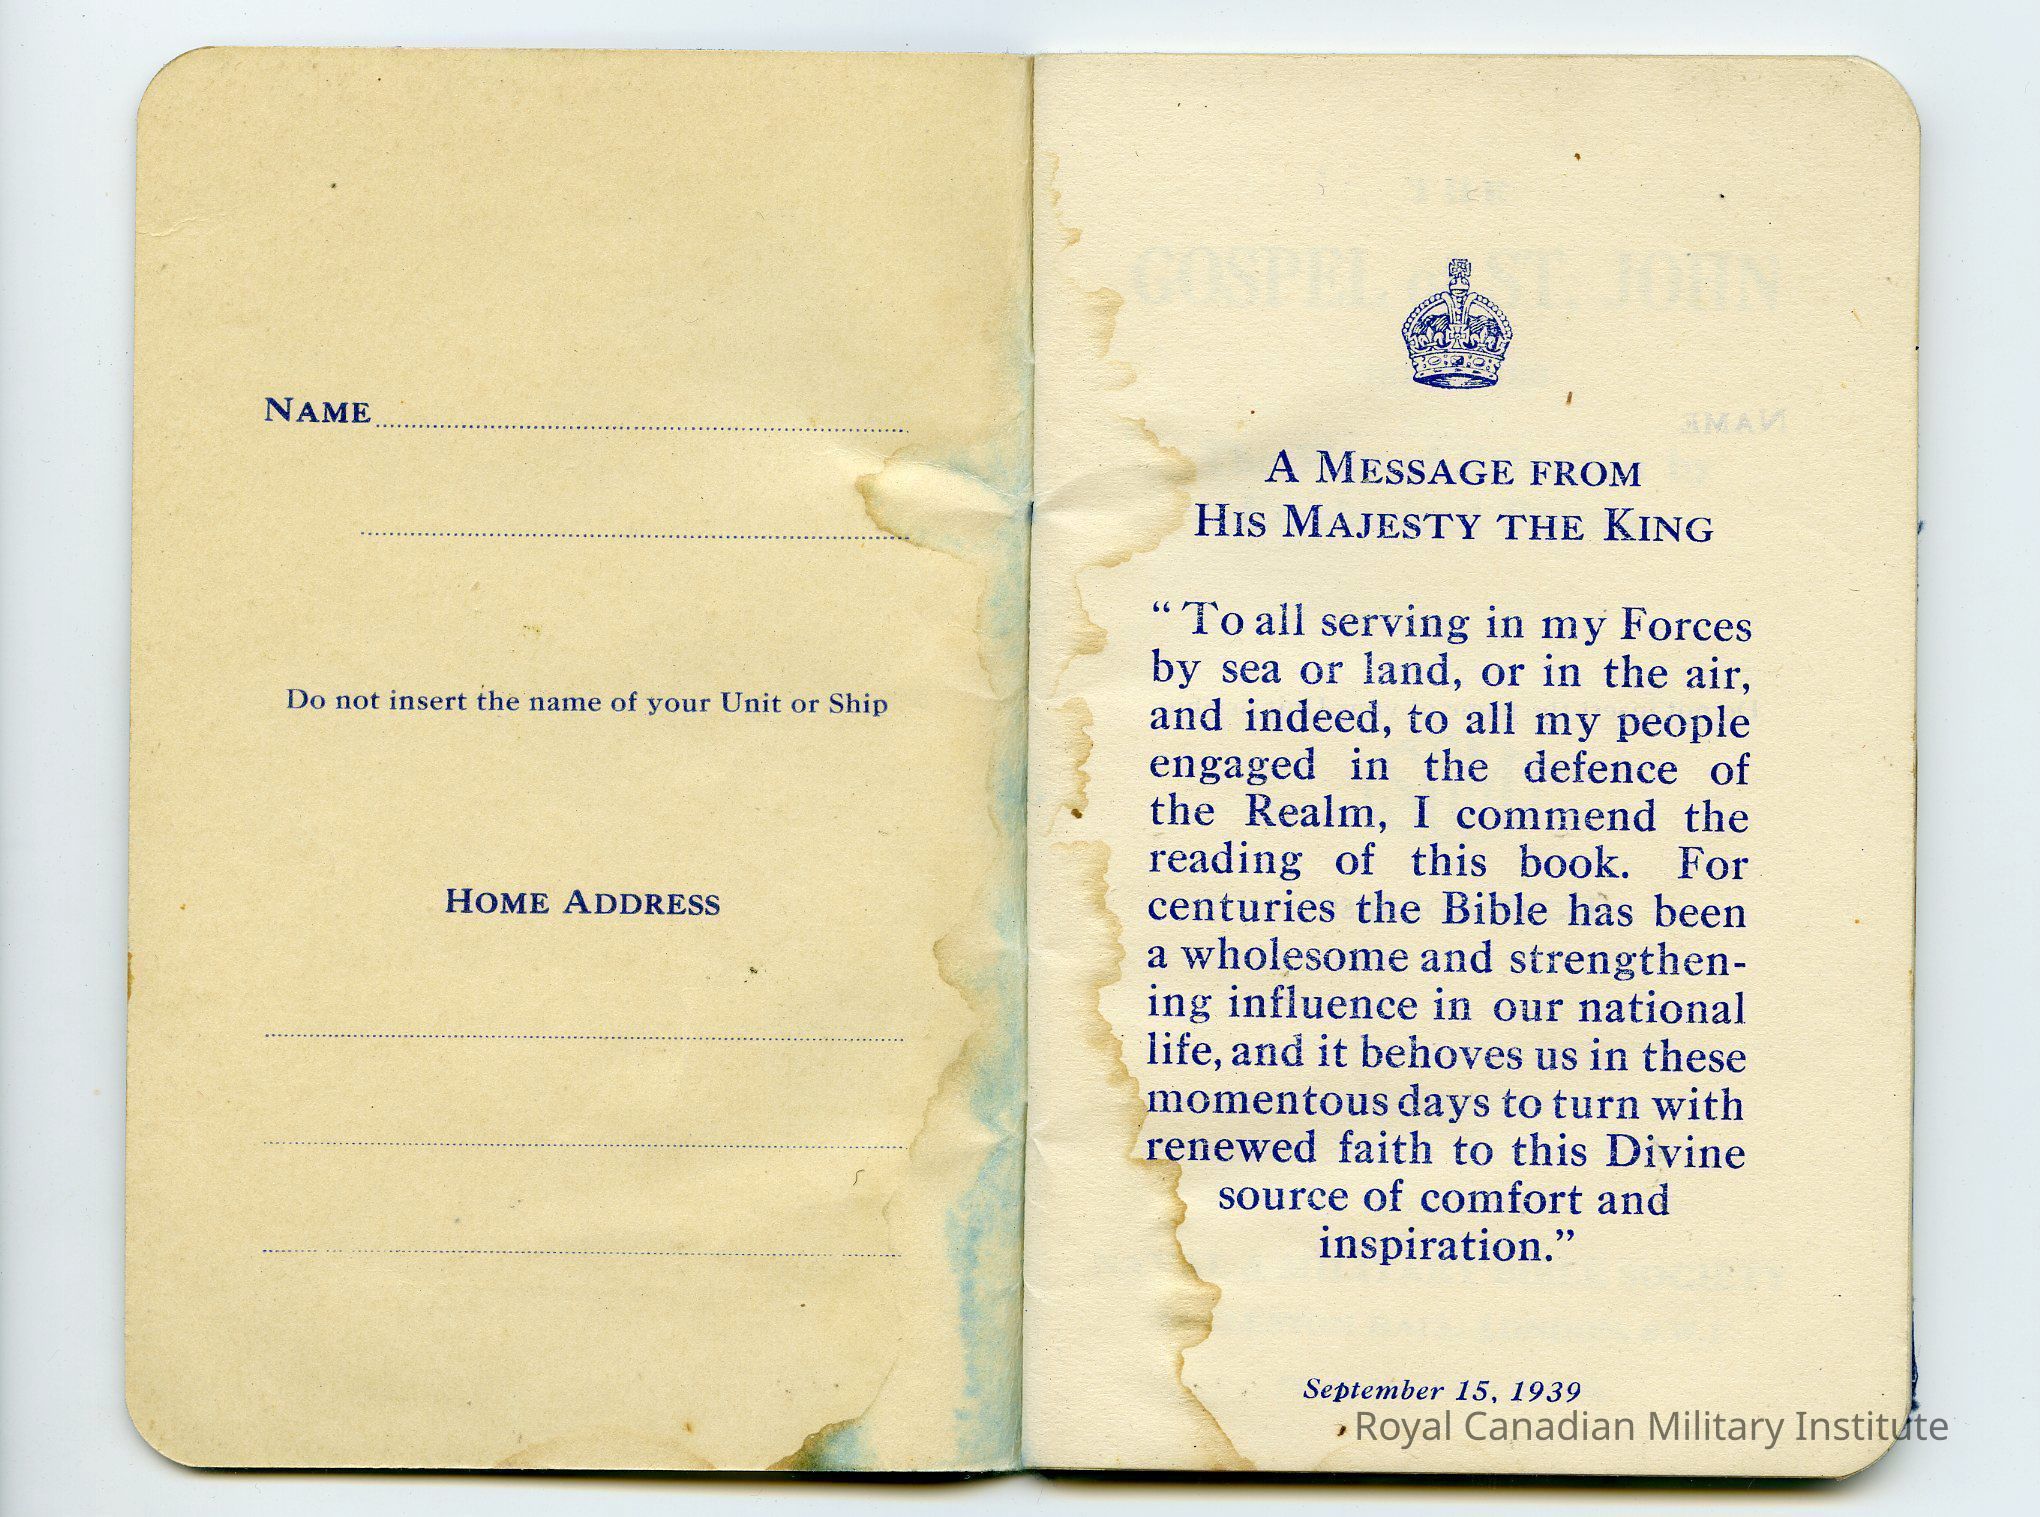 NAME
Do not insert the name of your Unit or Ship
HOME ADDRESS
A MESSAGE FROM
HIS MAJESTY THE KING
“ To all serving in my Forces
by sea or land, or in the air,
and indeed, to all my people
engaged in the defence of
the Realm, I commend the
reading of this book. For
centuries the Bible has been
a wholesome and strengthen-
ing influence in our national
life, and it behoves us in these
momentous days to turn with
renewed faith to this Divine
source of comfort and
inspiration.”
September 15, 1939
Royal Canadian Military Institute